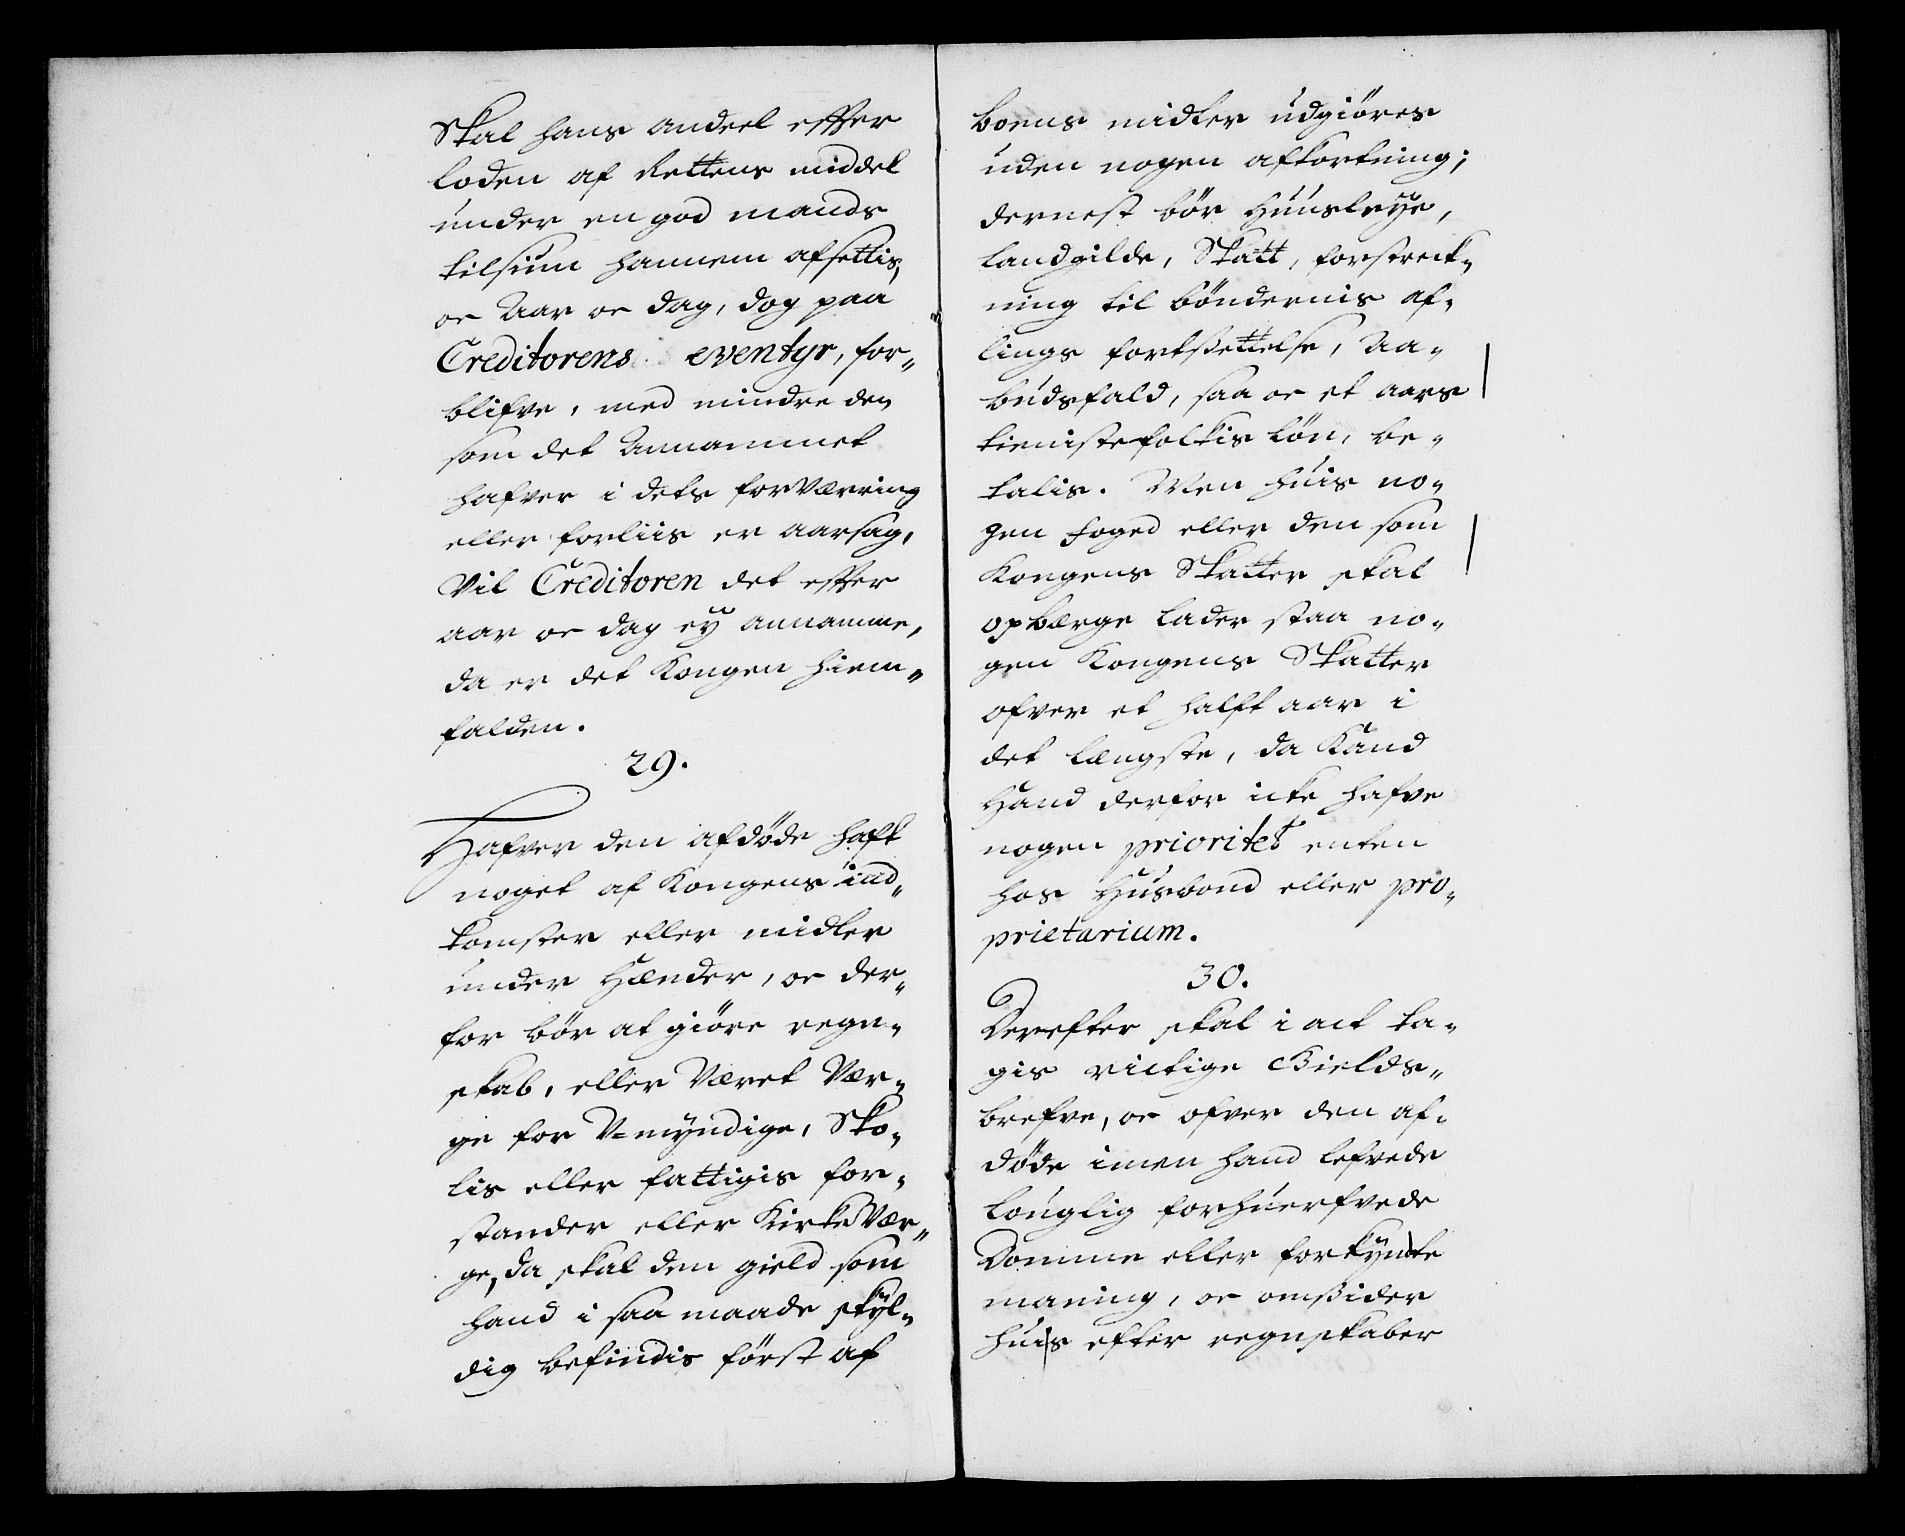 Skal hans andeel effter
loden af Rettens middel
under en god mands
tilsiun hannem afsettis,
oc Aar oc dag, dog paa
Creditorens eventyr, for„
blifve, med mindre den
som det Annammet
hafver i dets forVærring
eller forliis er aarsag,
Vil Creditoren det effter
aar oc dag ey annamme,
da er det Kongen hiem„
falden.
29.
Hafver den afdøde haft
noget af Kongens ind„
komster eller midler
under Hænder, oc der„
for bør at giøre regn„
skab, eller Været Vær„
ge for V=myndige, Sko„
lis eller fattigis for„
stander eller KirkeVær„
ge, da skal den gield som
hand i saa maade skyl„
dig befindis først af
boens midler udgiøres
uden nogen afkortning;
dernest bør Huusleye,
landgilde, Skatt, forstreck„
ning til bøndernis af„
lings fortsettelse, Aa„
budsfald, saa oc et aars
tienistefolkis løn, be„
talis. Men huis no„
gen foged eller den som
Kongens Skatter skal
opbærge lader staa no„
gen Kongens Skatter
ofver et halft aar i
det længste, da Kand
Hand derfor icke hafve
nogen prioritet enten
hos Husbond eller pro„
prietarium.
30.
Derefter skal i act ta„
gis rictige Gields„
brefve, oc ofver den af„
døde imen hand lefvede
louglig forhuerfvede
Domme eller forkyndte
maning, oc omsider
huis efter regnskaber